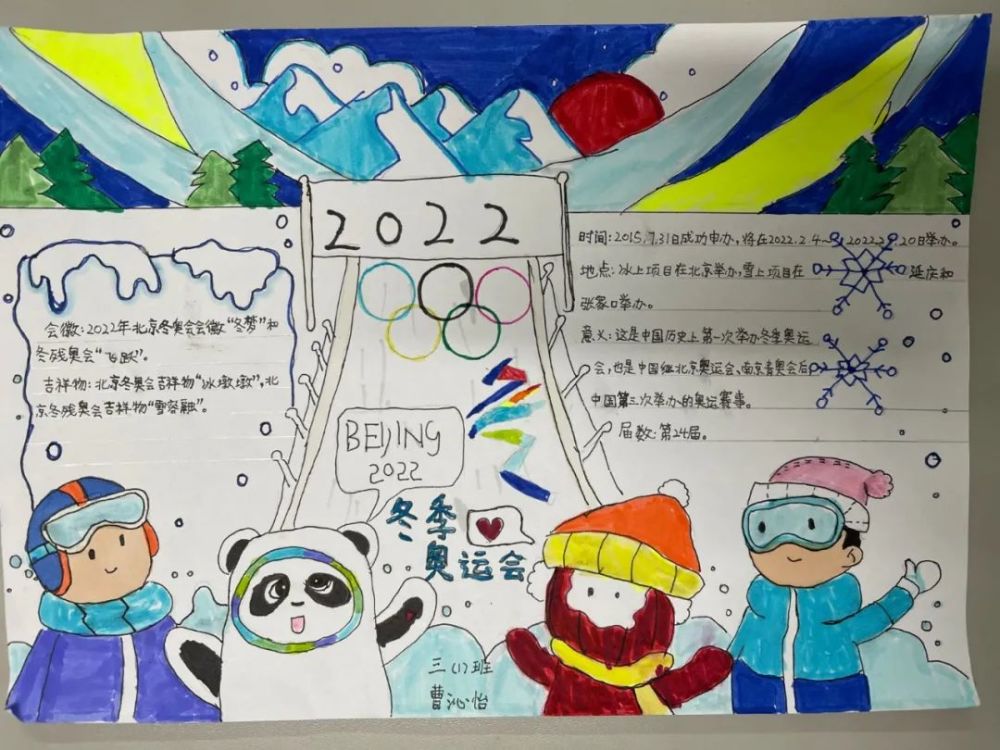 2022
会徽:2022年北京冬奥会会徽“冬梦”和
冬残奥会“飞跃”。
吉祥物:北京冬奥会吉祥物“冰墩墩”,北
京冬残奥会吉祥物“雪容融”。
时间:2015.7.31日成功申办,将在2022.2.4~2022.2.20日举办。
地点:冰上项目在北京举办,雪上项目在延庆和
张家口举办。
意义:这是中国历史上第一次举办冬季奥运
会,也是中国继北京奥运会、南京青奥会后
中国第三次举办的奥运赛事。
届数:第24届。
BEIJING
2022
冬季
奥运会
三(1)班
曹沁怡